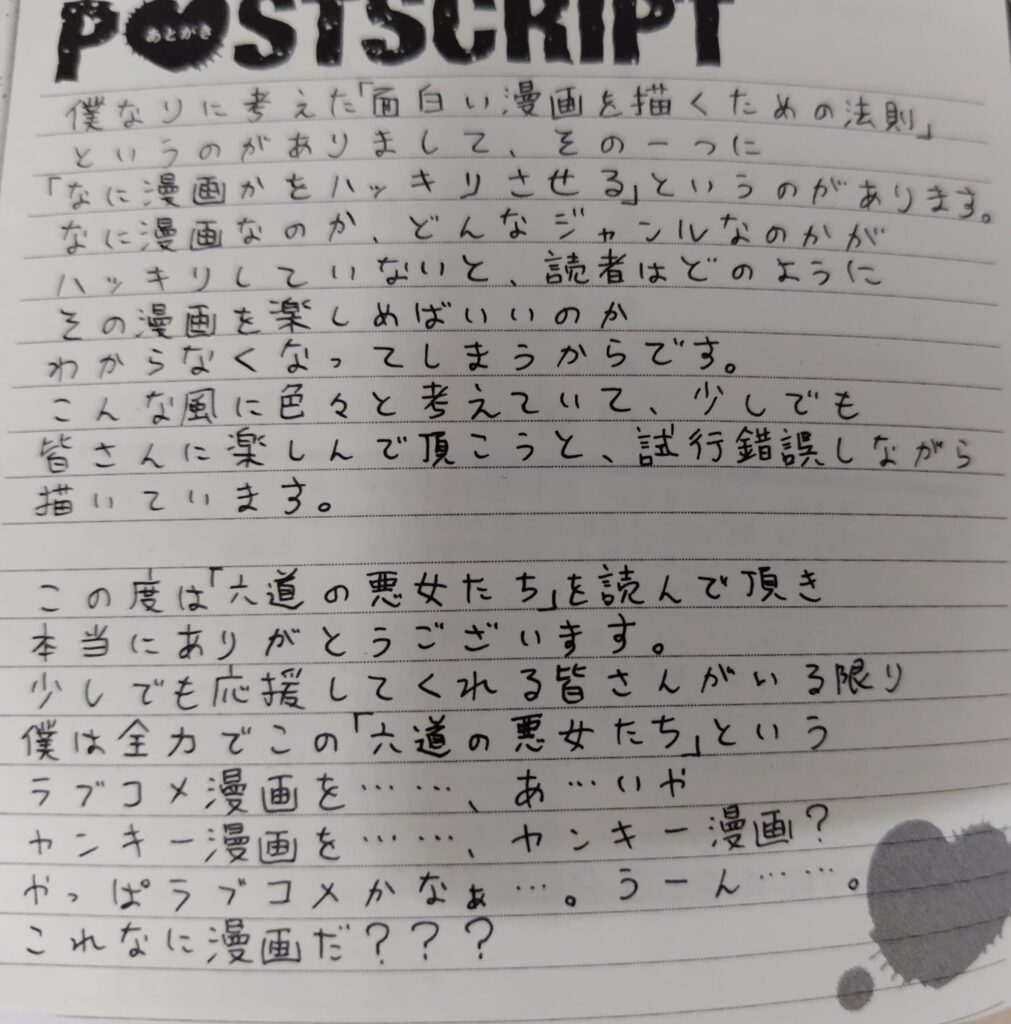 POSTSCRIPT
あとがき
僕なりに考えた「面白い漫画を描くための法則」
というのがありまして、その一つに
「なに漫画かをハッキリさせる」というのがあります。
なに漫画なのか、どんなジャンルなのかが
ハッキリしていないと、読者はどのように
その漫画を楽しめばいいのか
わからなくなってしまうからです。
こんな風に色々と考えていて、少しでも
皆さんに楽しんで頂こうと、試行錯誤しながら
描いています。
この度は「六道の悪女たち」を読んで頂き
本当にありがとうございます。
少しでも応援してくれる皆さんがいる限り
僕は全力でこの「六道の悪女たち」という
ラブコメ漫画を……、あ…いや
ヤンキー漫画を……、ヤンキー漫画？
やっぱラブコメかなぁ…。うーん……。
これなに漫画だ？？？